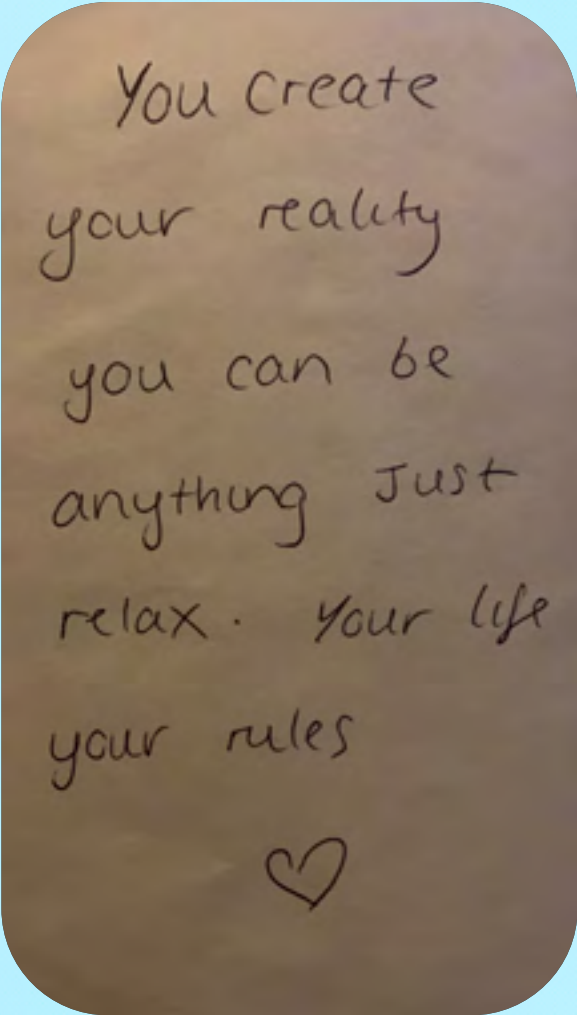 You create
your reality
you can be
anything Just
relax. Your life
your rules